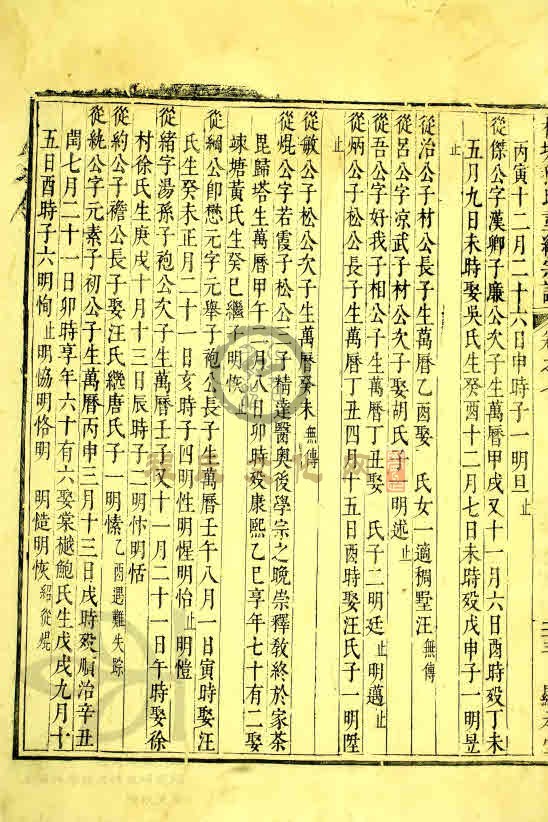 丙寅十二月二十六日申時子一明旦止
從傑公字漢卿子廉公次子生萬曆甲戌又十一月六日酉時歿丁未
五月九日未時娶吳氏生癸酉十二月七日未時歿戊申子一明昱
止
從治公子材公長子生萬曆乙酉娶 氏女一適稠墅汪無傳
從呂公字凉武子材公次子娶胡氏子 明述止
從吾公字好我子相公子生萬曆丁丑娶 氏子二明廷止明邁止
從炳公子松公長子生萬曆丁丑四月十五日酉時娶汪氏子一明陞
止
從敏公子松公次子生萬曆癸未無傳
從焜公字若霞子松公 子精達醫奥後學宗之晚崇釋敎終於家茶
毘歸塔生萬曆甲午二月八日卯時歿康熙乙巳享年七十有二娶
竦塘黃氏生癸巳繼子明恢止
從綱公卽懋元字元舉子袍公長子生萬曆壬午八月一日寅時娶汪
氏生癸未正月二十一日亥時子四明性明惺明怡止明愷
從緒字湯孫子袍公次子生萬曆壬子又十一月二十一日午時娶徐
村徐氏生庚戌十月十三日辰時子二明忭明恬
從約公子襜公長子娶汪氏繼唐氏子一明愫乙酉遇難失踪
從紈公字元素子初公子生萬曆丙申三月十三日戌時歿順治辛丑
閏七月二十一日卯時享年六十有六娶棠樾鮑氏生戊戌九月十
五日酉時子六明恂止明協明恪明 明慥明恢紹從焜